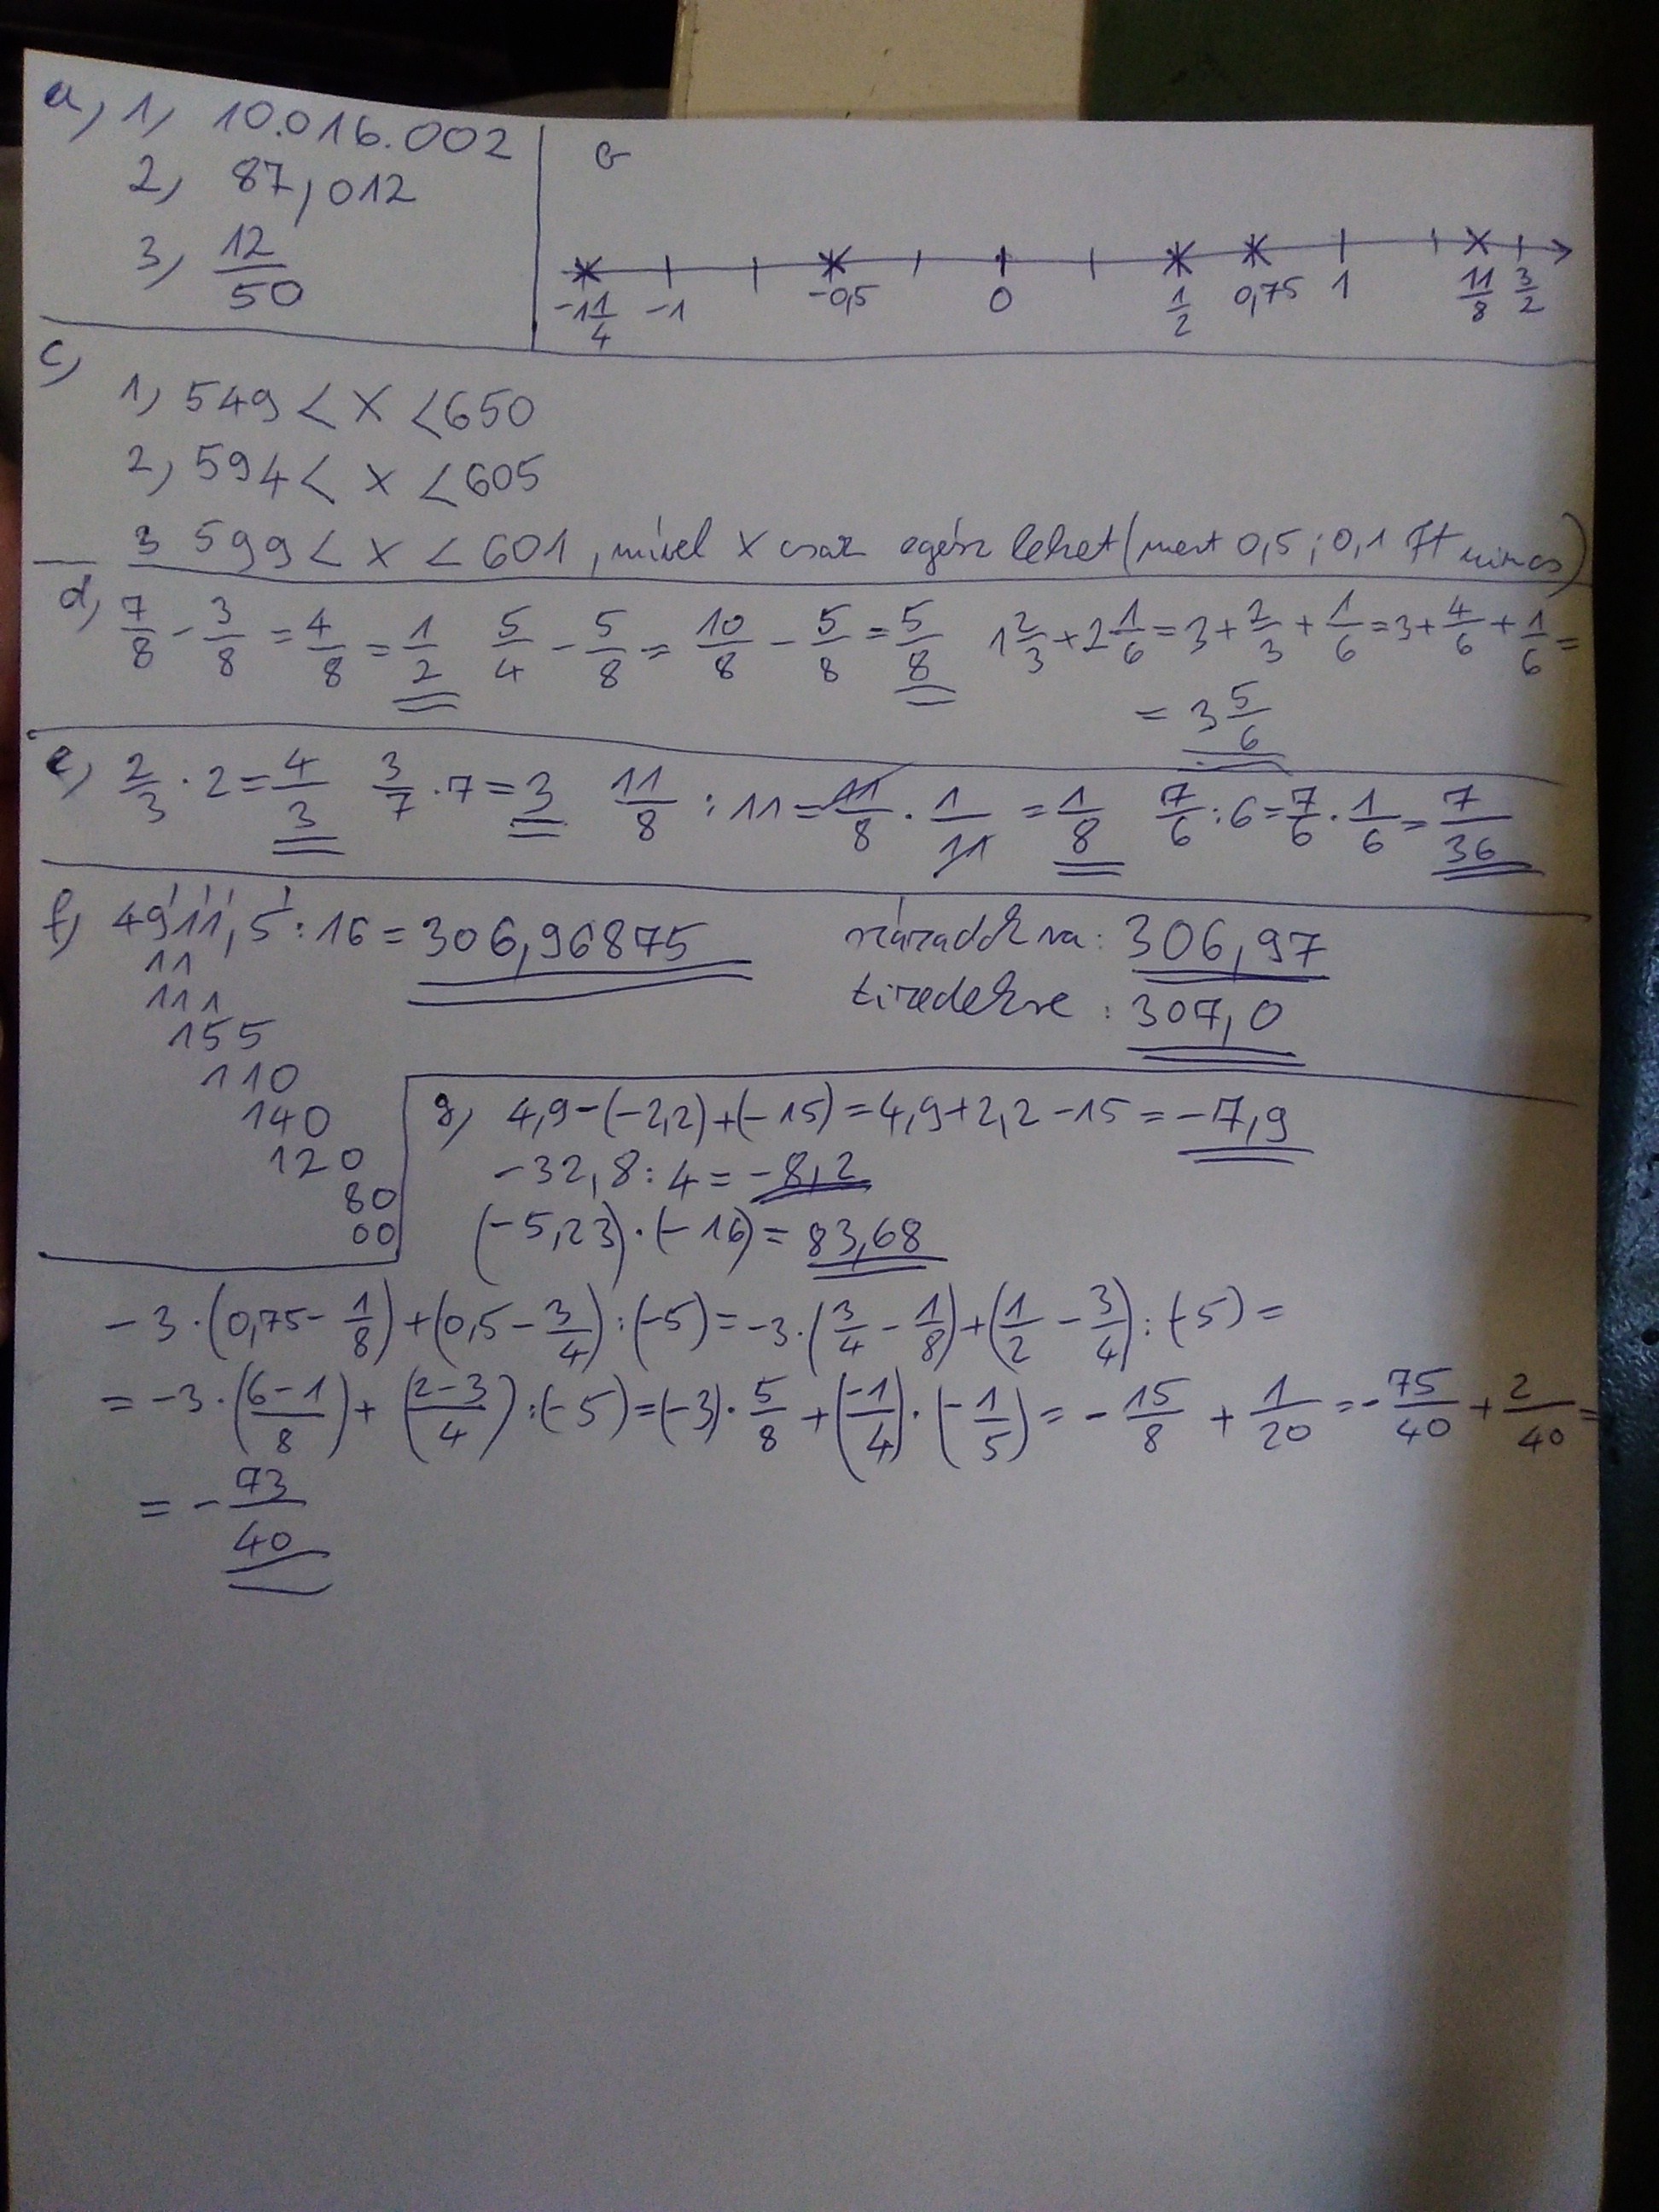 a, 1, 10.016.002
2, 87,012
3, 12/50
b
-1 1/4 -1 -0,5 0 1/2 0,75 1 11/8 3/2
c,
1, 549 < x < 650
2, 594 < x < 605
3 599 < x < 601, mivel x csak egész lehet (mert 0,5; 0,1 Ft nincs)
d, 7/8 - 3/8 = 4/8 = 1/2 5/4 - 5/8 = 10/8 - 5/8 = 5/8 1 2/3 + 2 1/6 = 3 + 2/3 + 1/6 = 3 + 4/6 + 1/6 =
= 3 5/6
e, 2/3 · 2 = 4/3 3/7 · 7 = 3 11/8 : 11 = 11/8 · 1/11 = 1/8 7/6 : 6 = 7/6 · 1/6 = 7/36
f, 4911,5 : 16 = 306,96875 századokra: 306,97
11
111 tizedekre : 307,0
155
110
140
120
80
00
g, 4,9-(-2,2)+(-15) = 4,9+2,2-15 = -7,9
-32,8 : 4 = -8,2
(-5,23)·(-16) = 83,68
-3·(0,75 - 1/8) + (0,5 - 3/4) : (-5) = -3·(3/4 - 1/8) + (1/2 - 3/4) : (-5) =
= -3·((6-1)/8) + ((2-3)/4) : (-5) = (-3)· 5/8 + (-1/4)·(-1/5) = - 15/8 + 1/20 = - 75/40 + 2/40 =
= - 73/40